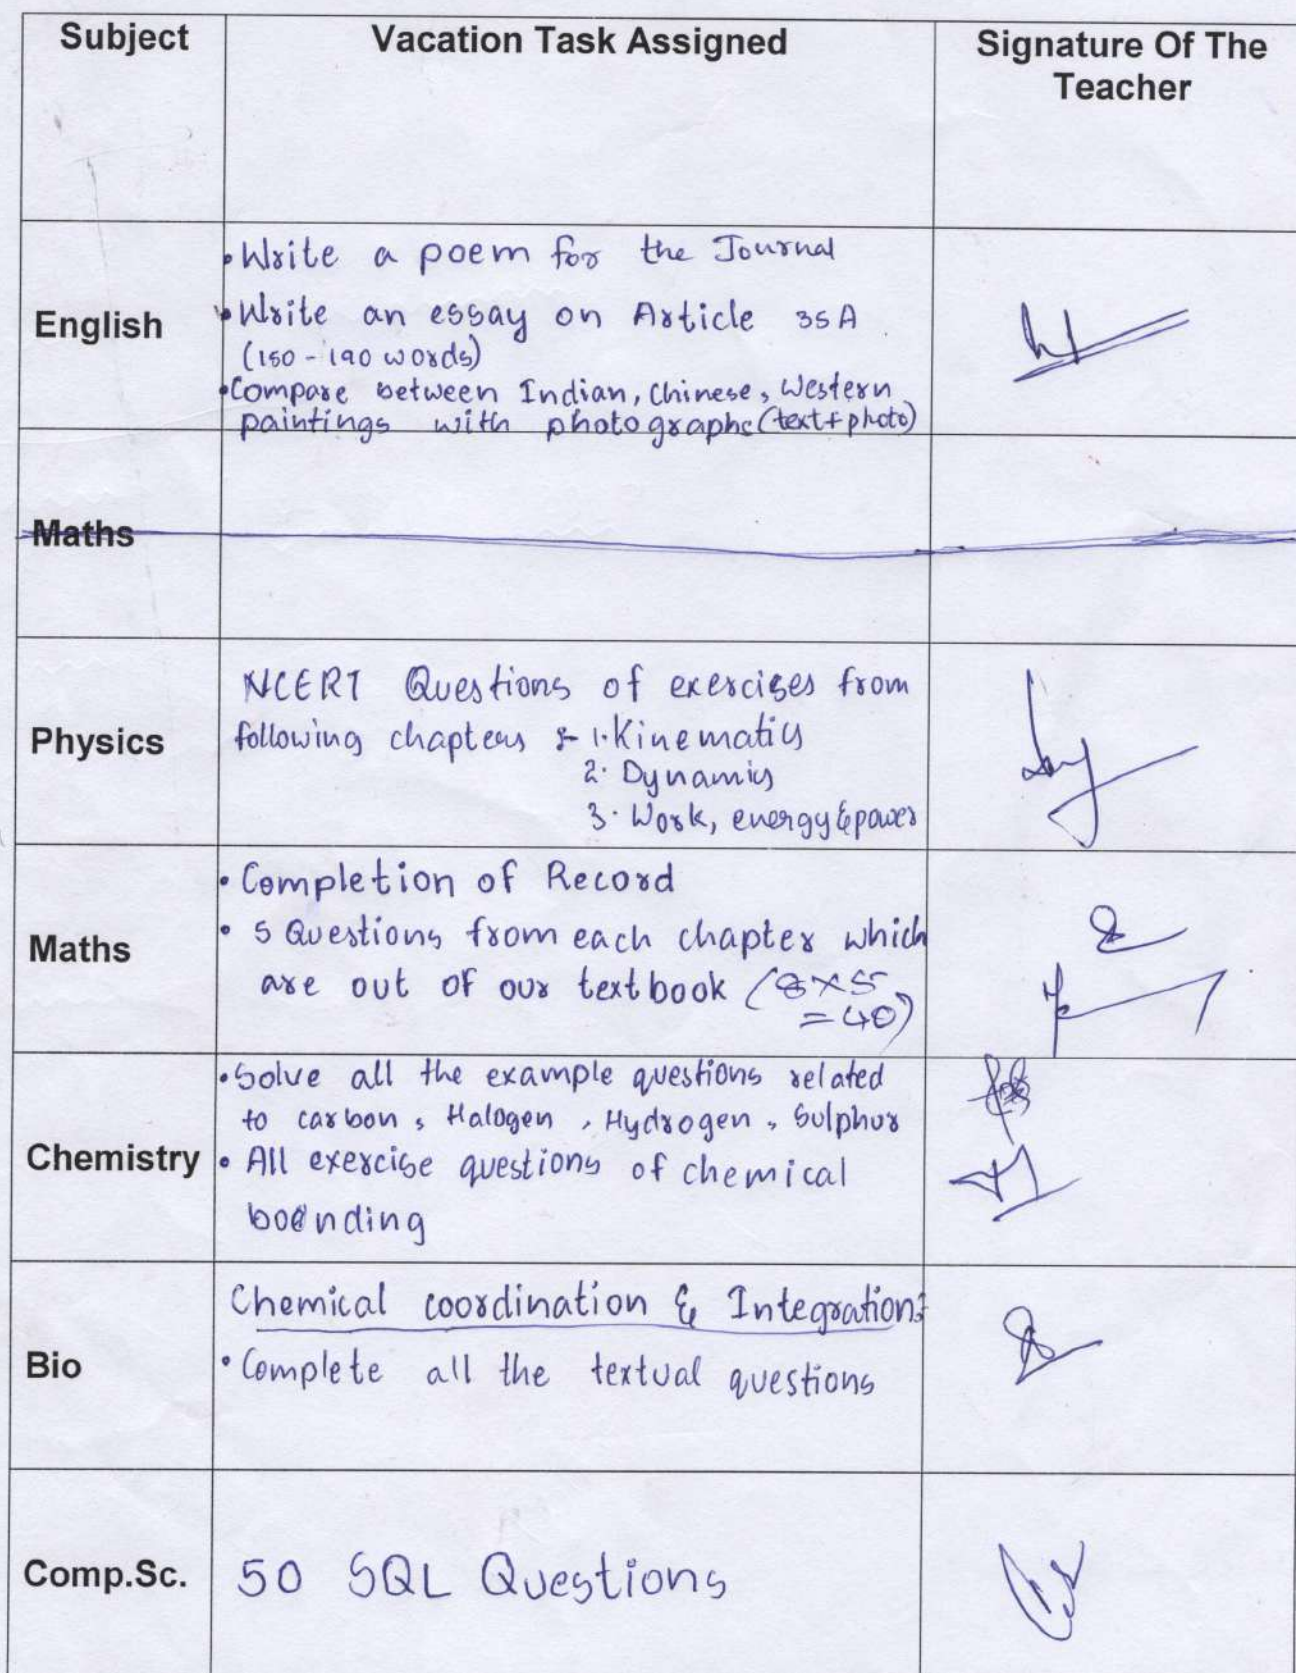 Subject
Vacation Task Assigned
Signature Of The
Teacher
English
• Write a poem for the Journal
• Write an essay on Article 35A
(150 - 190 words)
• Compare between Indian, Chinese, Western
paintings with photographs (text+photo)
Maths
Physics
NCERT Questions of exercises from
following chapters :- 1. Kinematics
2. Dynamics
3. Work, energy & power
Maths
• Completion of Record
• 5 Questions from each chapter which
are out of our textbook (8×5
=40)
Chemistry
• Solve all the example questions related
to carbon, Halogen, Hydrogen, Sulphur
• All exercise questions of chemical
bonding
Bio
Chemical coordination & Integration:
• Complete all the textual questions
Comp.Sc.
50 SQL Questions